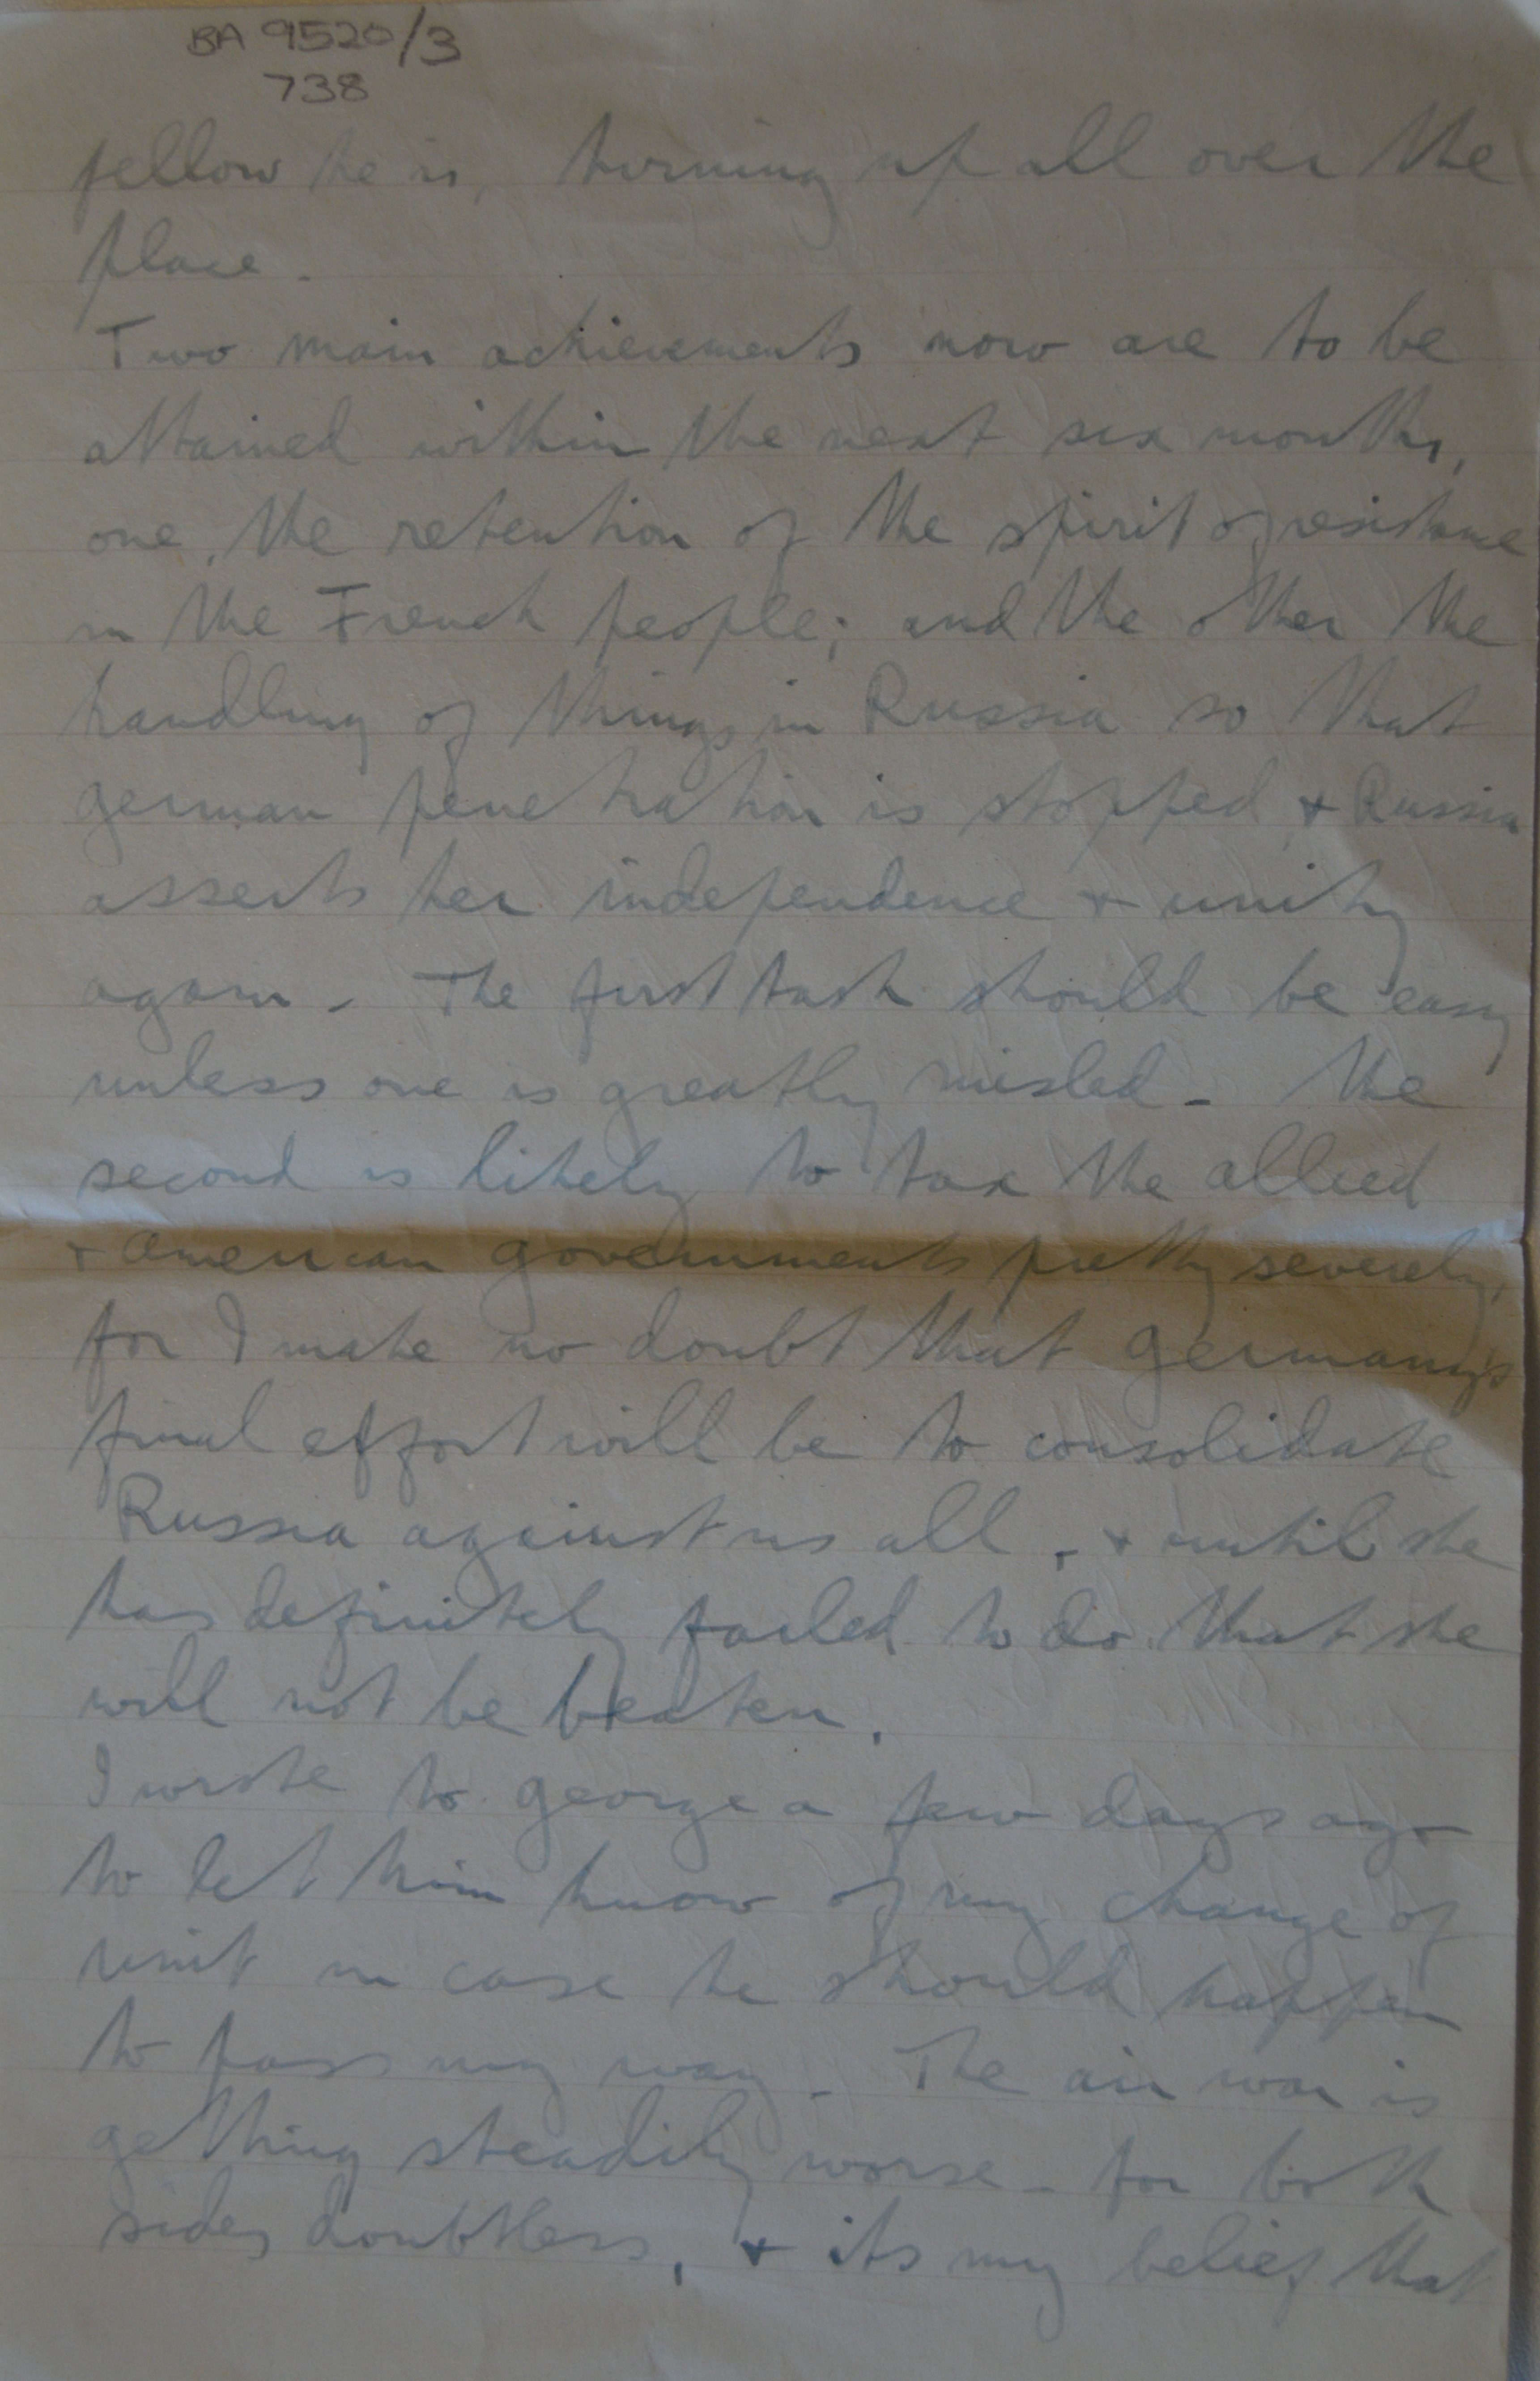 BA 9520/3
738
fellow he is, turning up all over the
place.
Two main achievements now are to be
attained within the next six months,
one, the retention of the spirit of resistance
in the French people; and the other the
handling of things in Russia so that
german penetration is stopped & Russia
asserts her independence & unity
again - The first task should be easy
unless one is greatly misled - the
second is likely to tax the allied
& american governments pretty severely,
for I make no doubt that Germany's
final effort will be to consolidate
Russia against us all, & until she
has definitely failed to do that she
will not be beaten.
I wrote to George a few days ago
to let him know of my change of
unit in case he should happen
to pass my way - The air war is
getting steadily worse - for both
sides doubtless, & its my belief that